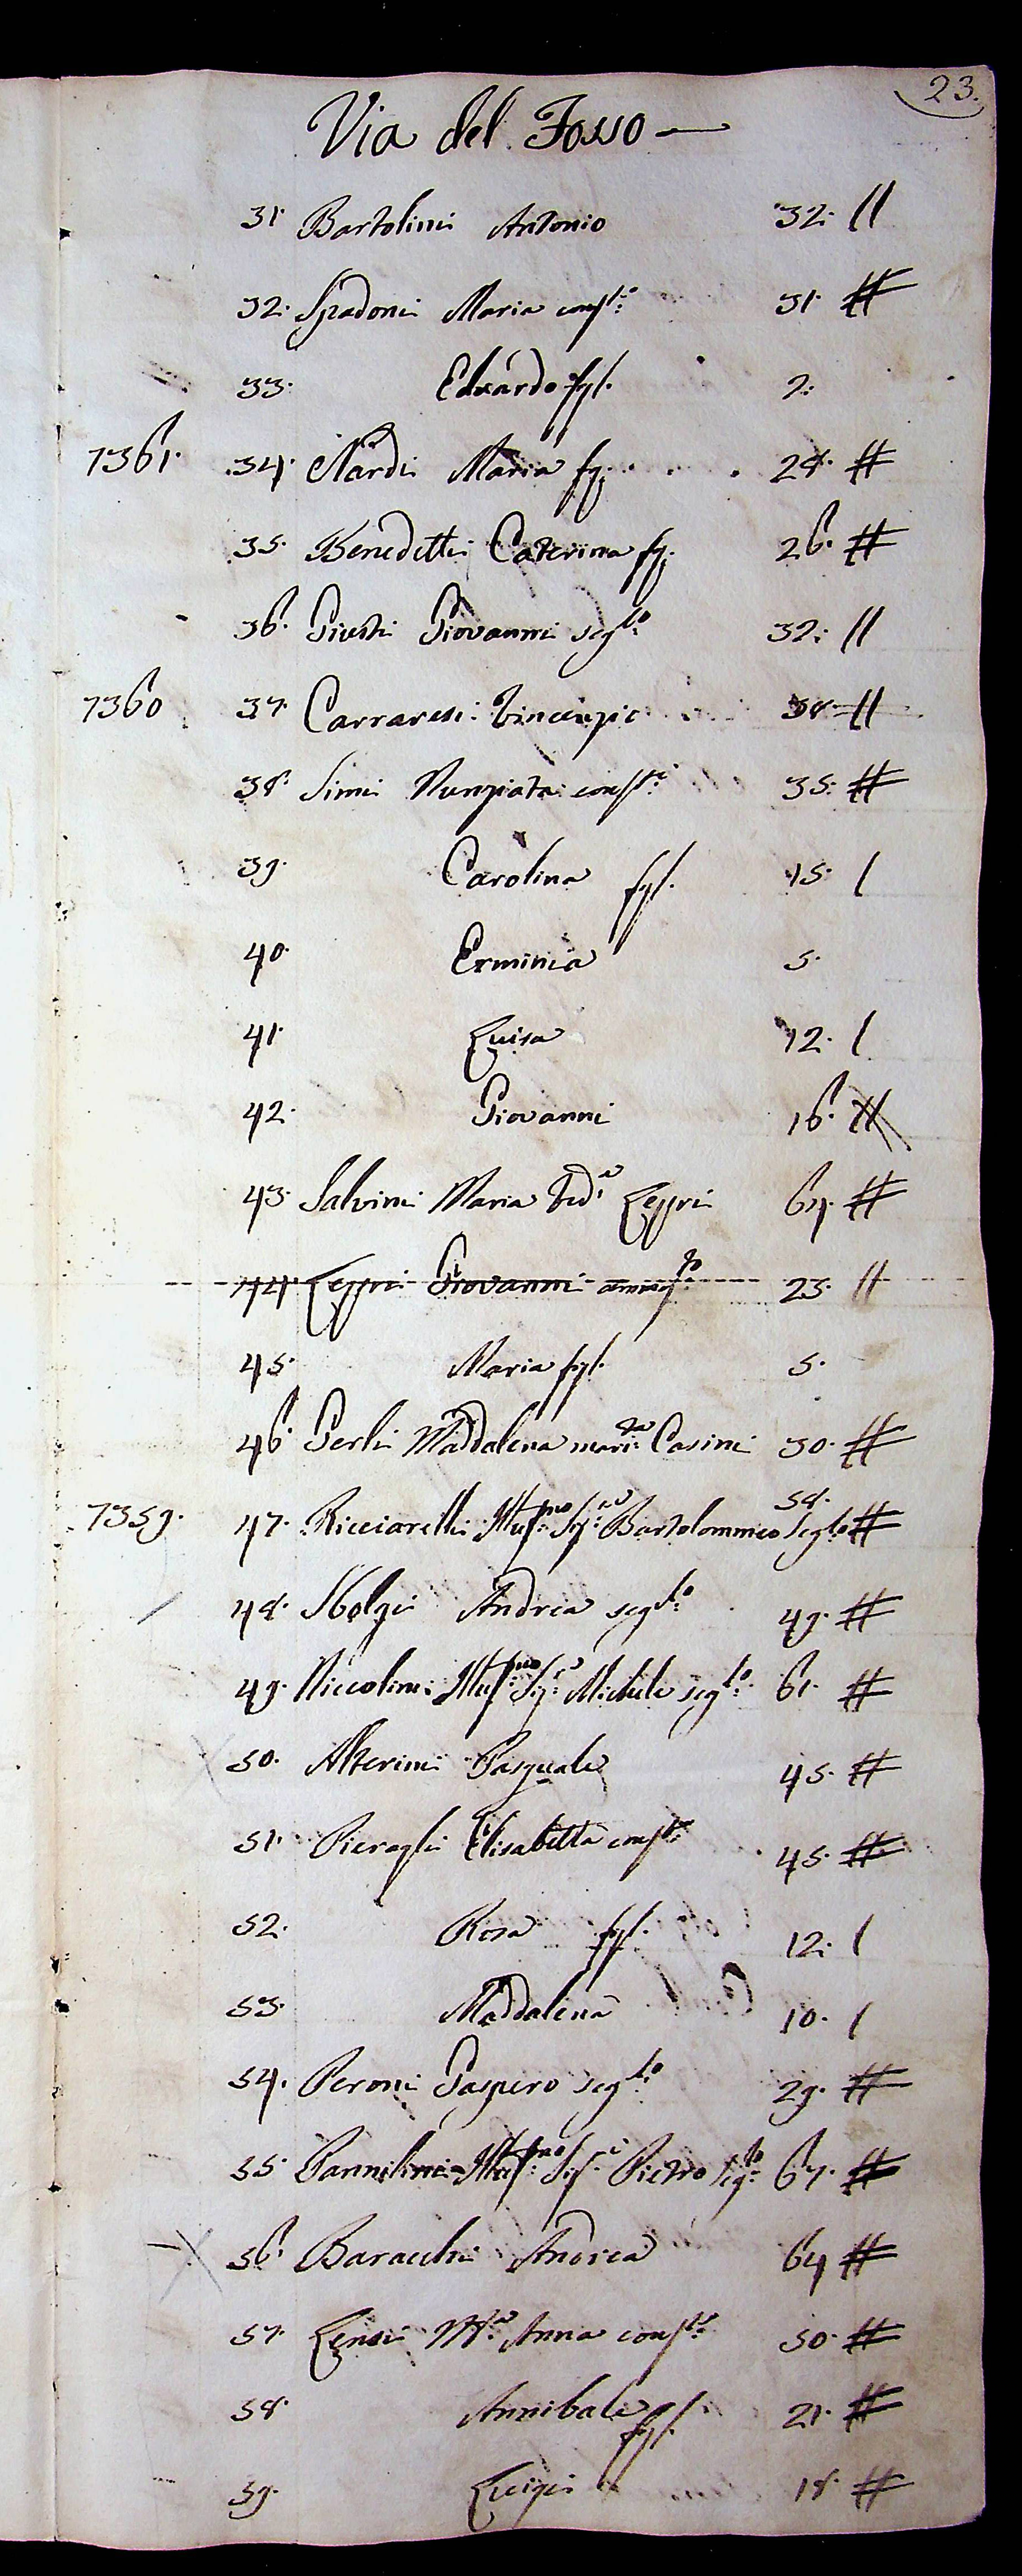 23.
Via del Fosso
31. Bartolini Antonio 32: //
32. Spadoni Maria cons.te 31. #
33. Eduardo fgl. 2:
7361. 34. Nardi Maria fg. 28. #
35. Benedetti Caterina fg. 26. #
36. Giusti Giovanni seg.to 32: //
7360 37. Carraresi Vincenzio 38. //
38. Simi Nunziata cons.te 35. #
39. Carolina fgl. 15. /
40. Erminia 5.
41. Luisa 12. /
42. Giovanni 16. #
43. Salvini Maria Ved.a Leppri 64. #
44. Leppri Giovanni ammog.to 23. //
45. Maria fgl. 5.
46. Gerli Maddalena mari.ta Casini 30. #
7359. 47. Ricciarelli Illus.mo Sig.re Bartolommeo seg.to 58. #
48. Sbolgi Andrea seg.to 49. #
49. Niccolini Illus.mo Sig.re Michele seg.to 61. #
50. Alterini Pasquale 45. #
51. Pieragli Elisabetta cons.te 45. #
52. Rosa fgl. 12. /
53. Maddalena 10. /
54. Peroni Gaspero seg.to 29. #
55. Pannilini Illus.mo Sig.r Pietro seg.to 67. #
56. Baracchi Andrea 64 #
57. Lensi M.a Anna cons.te 50. #
58. Annibale fgl. 21. #
59. Luigi 18. #